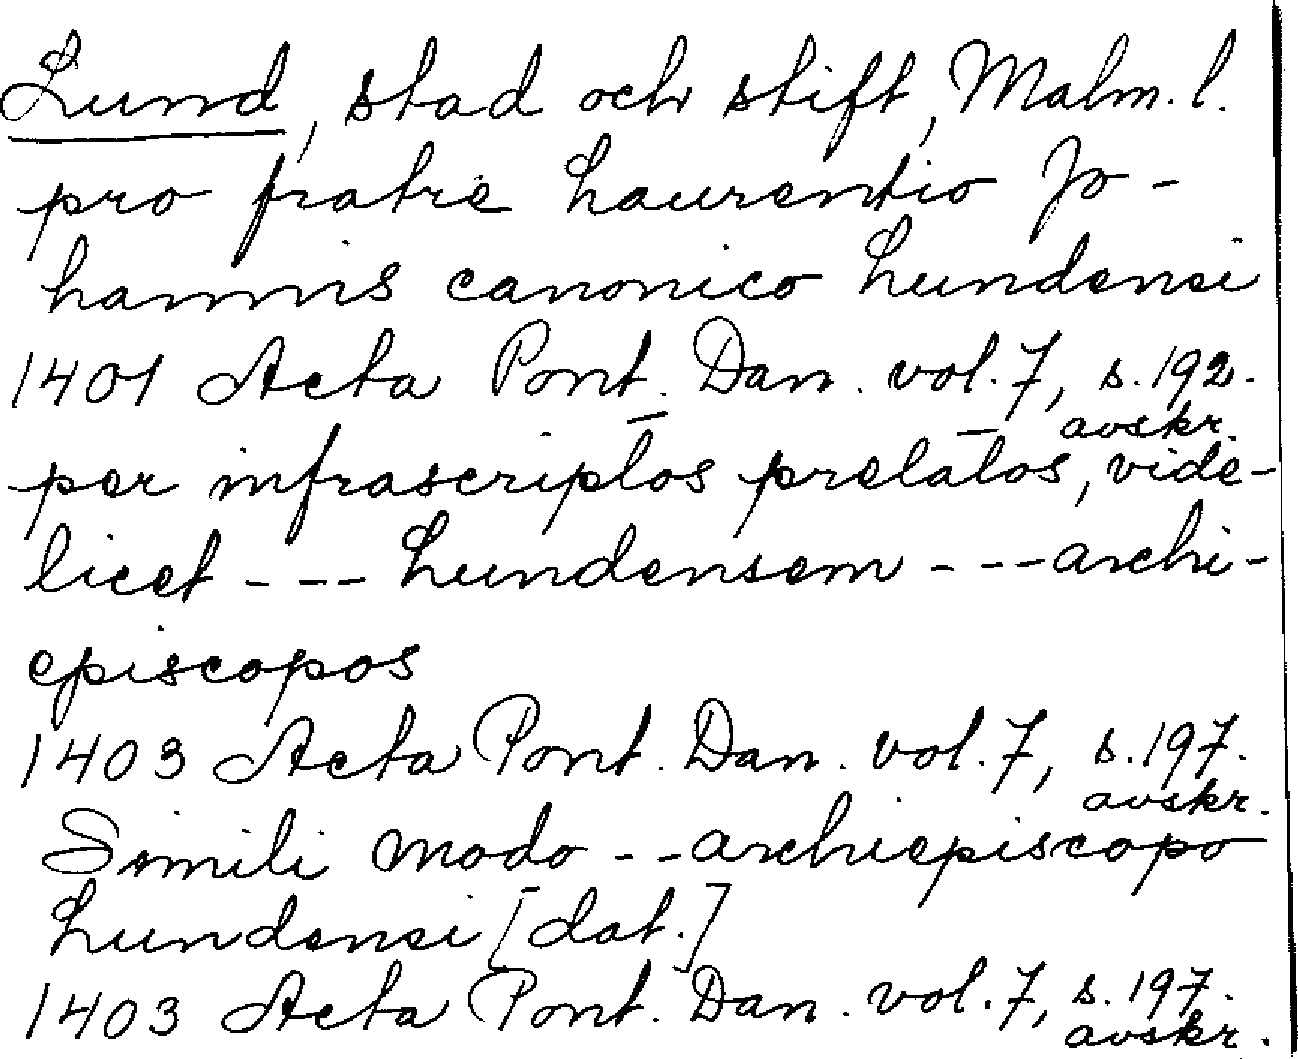 Lund, stad och stift, Malm. l.
pro fratre Laurentio Jo-
hannis canonico Lundensi
1401 Acta Pont. Dan. vol. 7, s. 192.
avskr.
per infrascriptos prelatos, vide-
licet --- Lundensem --- archi-
episcopos
1403 Acta Pont. Dan. vol. 7, s. 197.
avskr.
Simili modo -- archiepiscopo
Lundensi [dat.]
1403 Acta Pont. Dan. vol. 7, s. 197.
avskr.